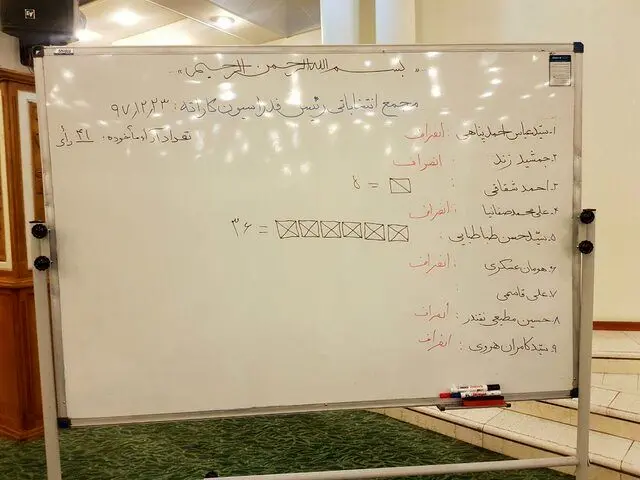 «بسم الله الرحمن الرحیم»
مجمع انتخاباتی رئیس فدراسیون کاراته: ۹۷/۱۲/۲۳
تعداد آراء مأخوذه: ۴۱ رأی
۱. سید عباس احمدپناهی: انصراف
۲. جمشید زند: انصراف
۳. احمد شقاقی: = ۵
۴. علی محمد صفانیا: انصراف
۵. سید حسن طباطبایی: = ۳۶
۶. هومان عسکری: انصراف
۷. علی قاسمی
۸. حسین مطیعی نقندر: انصراف
۹. سید کامران هروی: انصراف